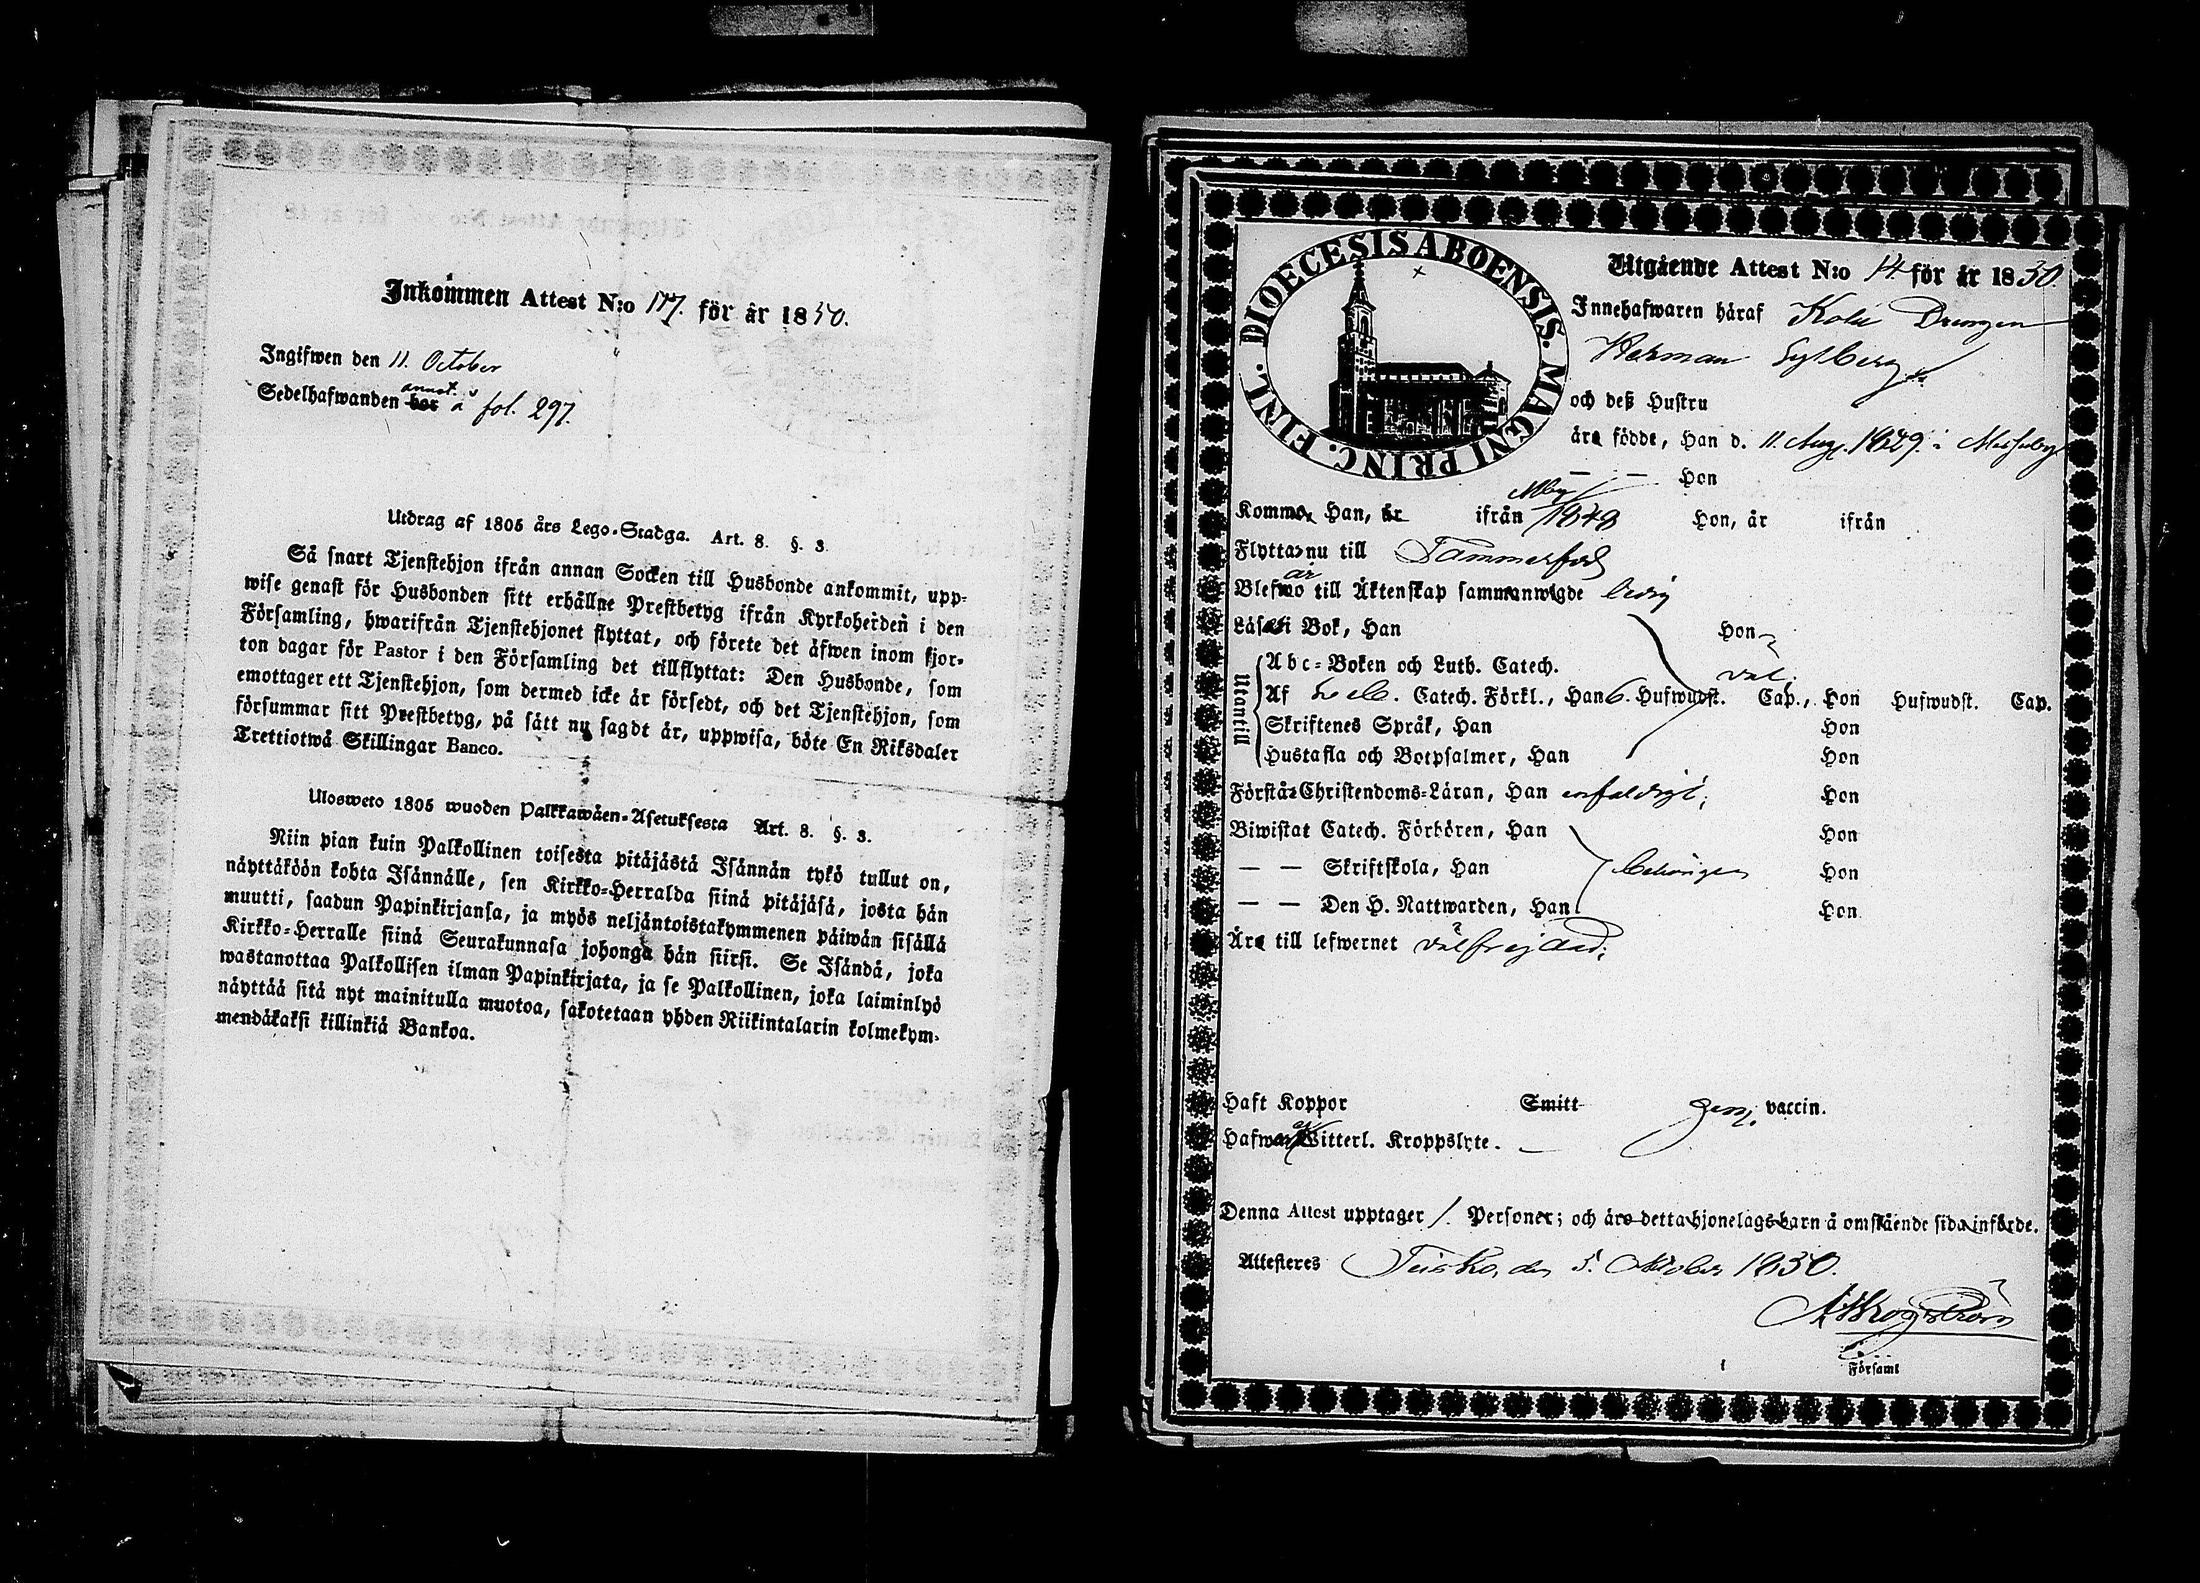 Inkommen Attest N:o 177. för år 1850.
Ingifwen den 11. October
annot.
Sedelhafwanden bor å fol. 297.
Utdrag af 1805 års Lego-Stadga. Art. 8. §. 3.
Så snart Tjenstehjon ifrån annan Socken till Husbonde ankommit, upp-
wise genast för Husbonden sitt erhållne Prestbetyg ifrån Kyrkoherden i den
Församling, hwarifrån Tjenstehjonet flyttat, och förete det äfwen inom fjor-
ton dagar för Pastor i den Församling det tillflyttat: Den Husbonde, som
emottager ett Tjenstehjon, som dermed icke är försedt, och det Tjenstehjon, som
försummar sitt Prestbetyg, på sätt nu sagdt är, uppwisa, böte En Riksdaler
Trettiotwå Skillingar Banco.
Ulosweto 1805 wuoden Palkkawäen-Asetuksesta Art. 8. §. 3.
Niin pian kuin Palkollinen toisesta pitäjästä Isännän tykö tullut on,
näyttäköön kohta Isännälle, sen Kirkko-Herralda siinä pitäjäsä, josta hän
muutti, saadun Papinkirjansa, ja myös neljäntoistakymmenen päiwän sisällä
Kirkko-Herralle siinä Seurakunnasa johonga hän siirsi. Se Isändä, joka
wastanottaa Palkollisen ilman Papinkirjata, ja se Palkollinen, joka laiminlyö
näyttää sitä nyt mainitulla muotoa, sakotetaan yhden Riikintalarin kolmekym-
mendäkaksi killinkiä Bankoa.
DIOECESIS ABOENSIS. MAGNI PRINC. FINL.
Utgående Attest N:o 14 för år 1850.
Innehafwaren häraf Drengen
Herman
och deß Hustru
äro födde, Han d. 11. Aug. 1829. i Messuby
— — Hon
Komm Han, år ifrån 1848 Hon, år ifrån
Flyttas nu till Tammerfors
är
Blefwo till Äktenskap sammanwigde ledig
Läsa i Bok, Han Hon
Utantill
Abc-Boken och Luth. Catech. väl.
Af Catech. Förkl., Han 6. Hufwudst. Cap., Hon Hufwudst. Cap.
Skriftenes Språk, Han Hon
Hustafla och Botpsalmer, Han Hon
Förstå Christendoms-Läran, Han enfaldigt; Hon
Biwistat Catech. Förhören, Han Hon
— — Skriftskola, Han behörigen Hon
— — Den H. Nattwarden, Han Hon
Äro till lefwernet välfrejdad;
Haft Koppor Smitt genom vaccin.
Hafwa Witterl. Kroppslyte. —
Denna Attest upptager 1. Personer; och äro detta hjonelags barn å omstående sida införde.
Attesteres Teisko, den 5. October 1850.
Församl